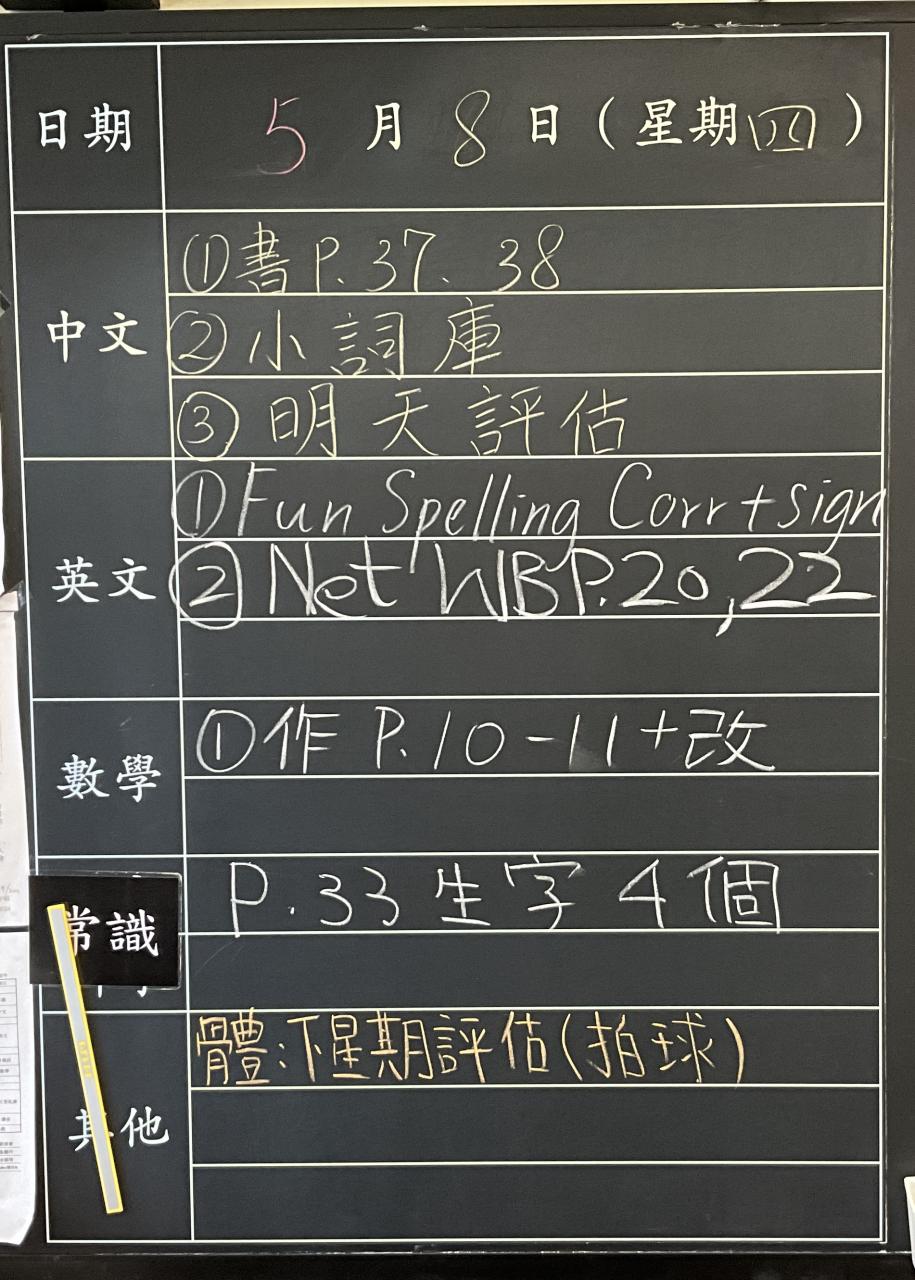 日期 5月8日(星期四)
中文 ①書P.37、38
②小詞庫
③明天評估
英文 ①Fun Spelling Corr+sign
②Net WBP.20,22
數學 ①作 P.10-11+改
常識 P.33生字4個
其他 體:下星期評估(拍球)